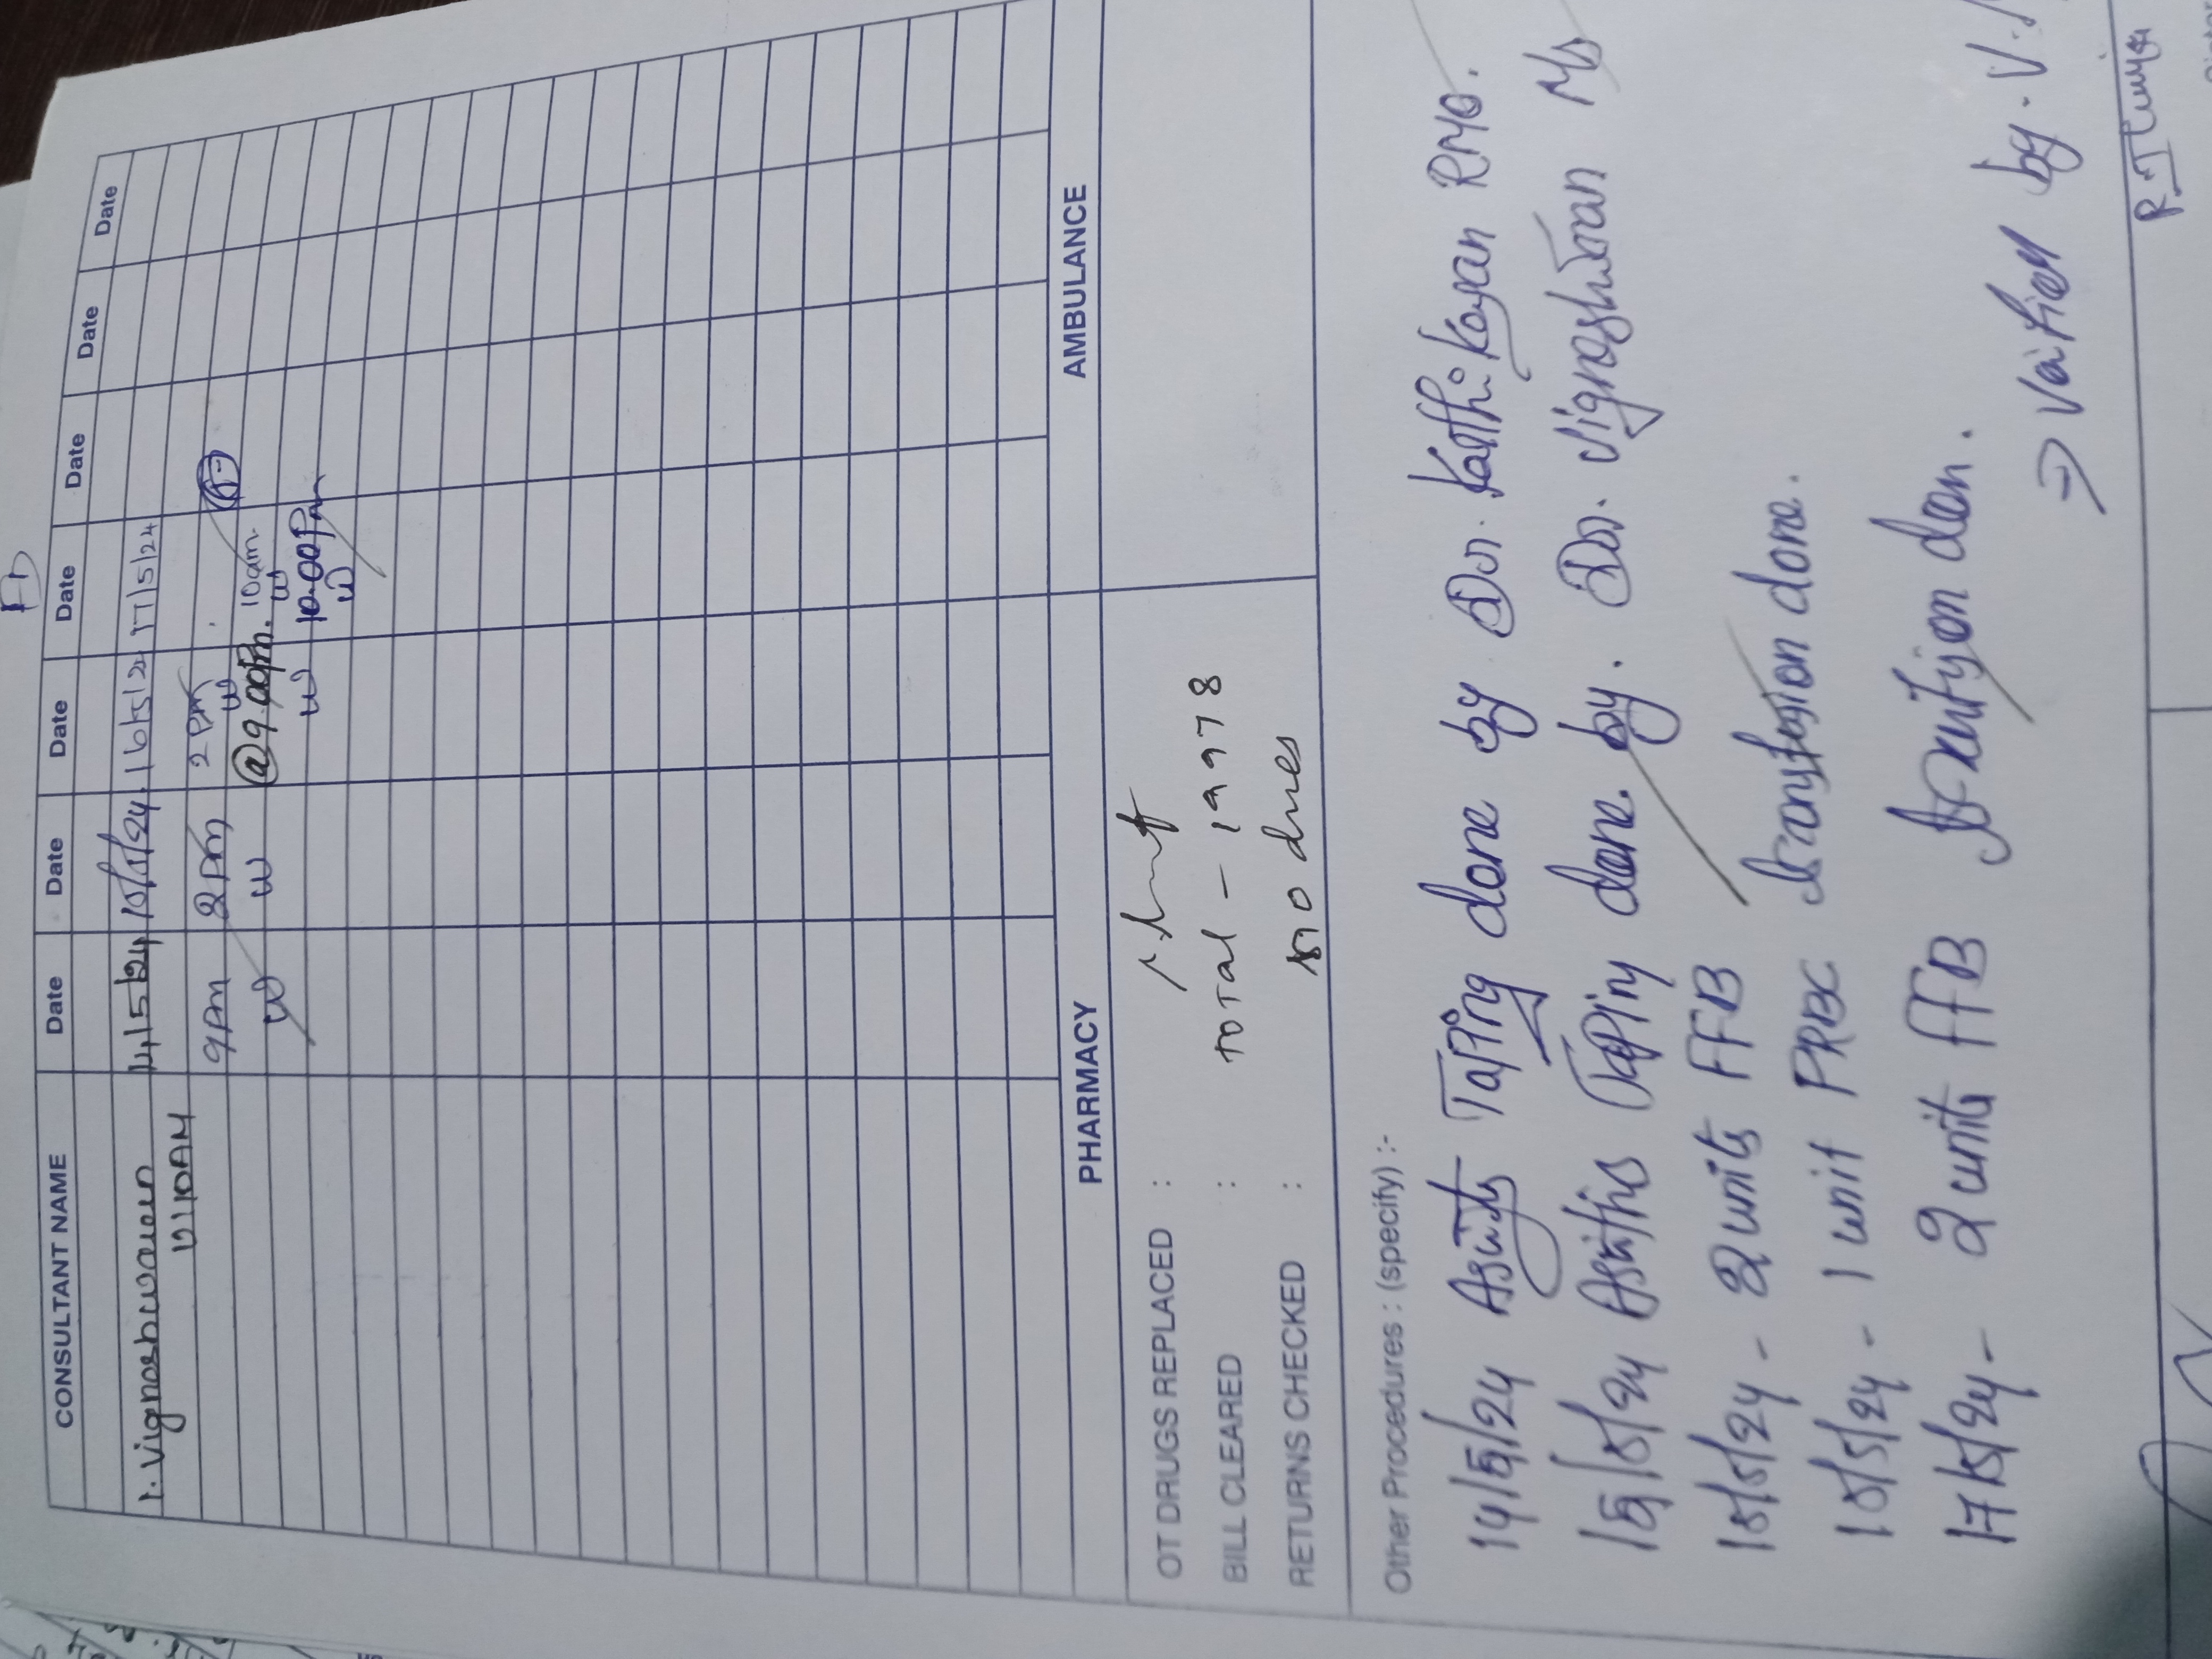 CONSULTANT NAME Date Date Date Date Date Date Date
1. Vigneshwaran 14/5/24 15/5/24 16/5/2 17/5/24
10AM
9pm 2pm 2pm
@9.00Pm. 10am
10.00Pm
PHARMACY AMBULANCE
OT DRUGS REPLACED :
BILL CLEARED : TOTAL - 19978
RETURNS CHECKED : NO dues
Other Procedures : (specify) :-
14/5/24 Taping done by Dr. Karthikeyan RMO.
15/5/24 Tapiny done by. Dr. Vigneshwaran
15/5/24 - 2 units FFB
15/5/24 - 1 unit PRBC transfusion done.
17/5/24 - 2 unit FFB
⇒ by. V.